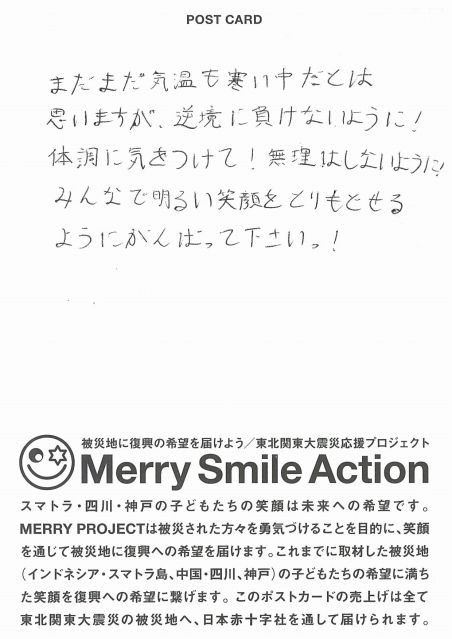 POST CARD
まだまだ気温も寒い中だとは
思いますが、逆境に負けないように!
体調に気をつけて!無理はしないように!
みんなで明るい笑顔をとりもどせる
ようにがんばって下さいっ!
被災地に復興の希望を届けよう/東北関東大震災応援プロジェクト
Merry Smile Action
スマトラ・四川・神戸の子どもたちの笑顔は未来への希望です。
MERRY PROJECTは被災された方々を勇気づけることを目的に、笑顔
を通じて被災地に復興への希望を届けます。これまでに取材した被災地
(インドネシア・スマトラ島、中国・四川、神戸)の子どもたちの希望に満ち
た笑顔を復興への希望に繋げます。このポストカードの売上げは全て
東北関東大震災の被災地へ、日本赤十字社を通して届けられます。